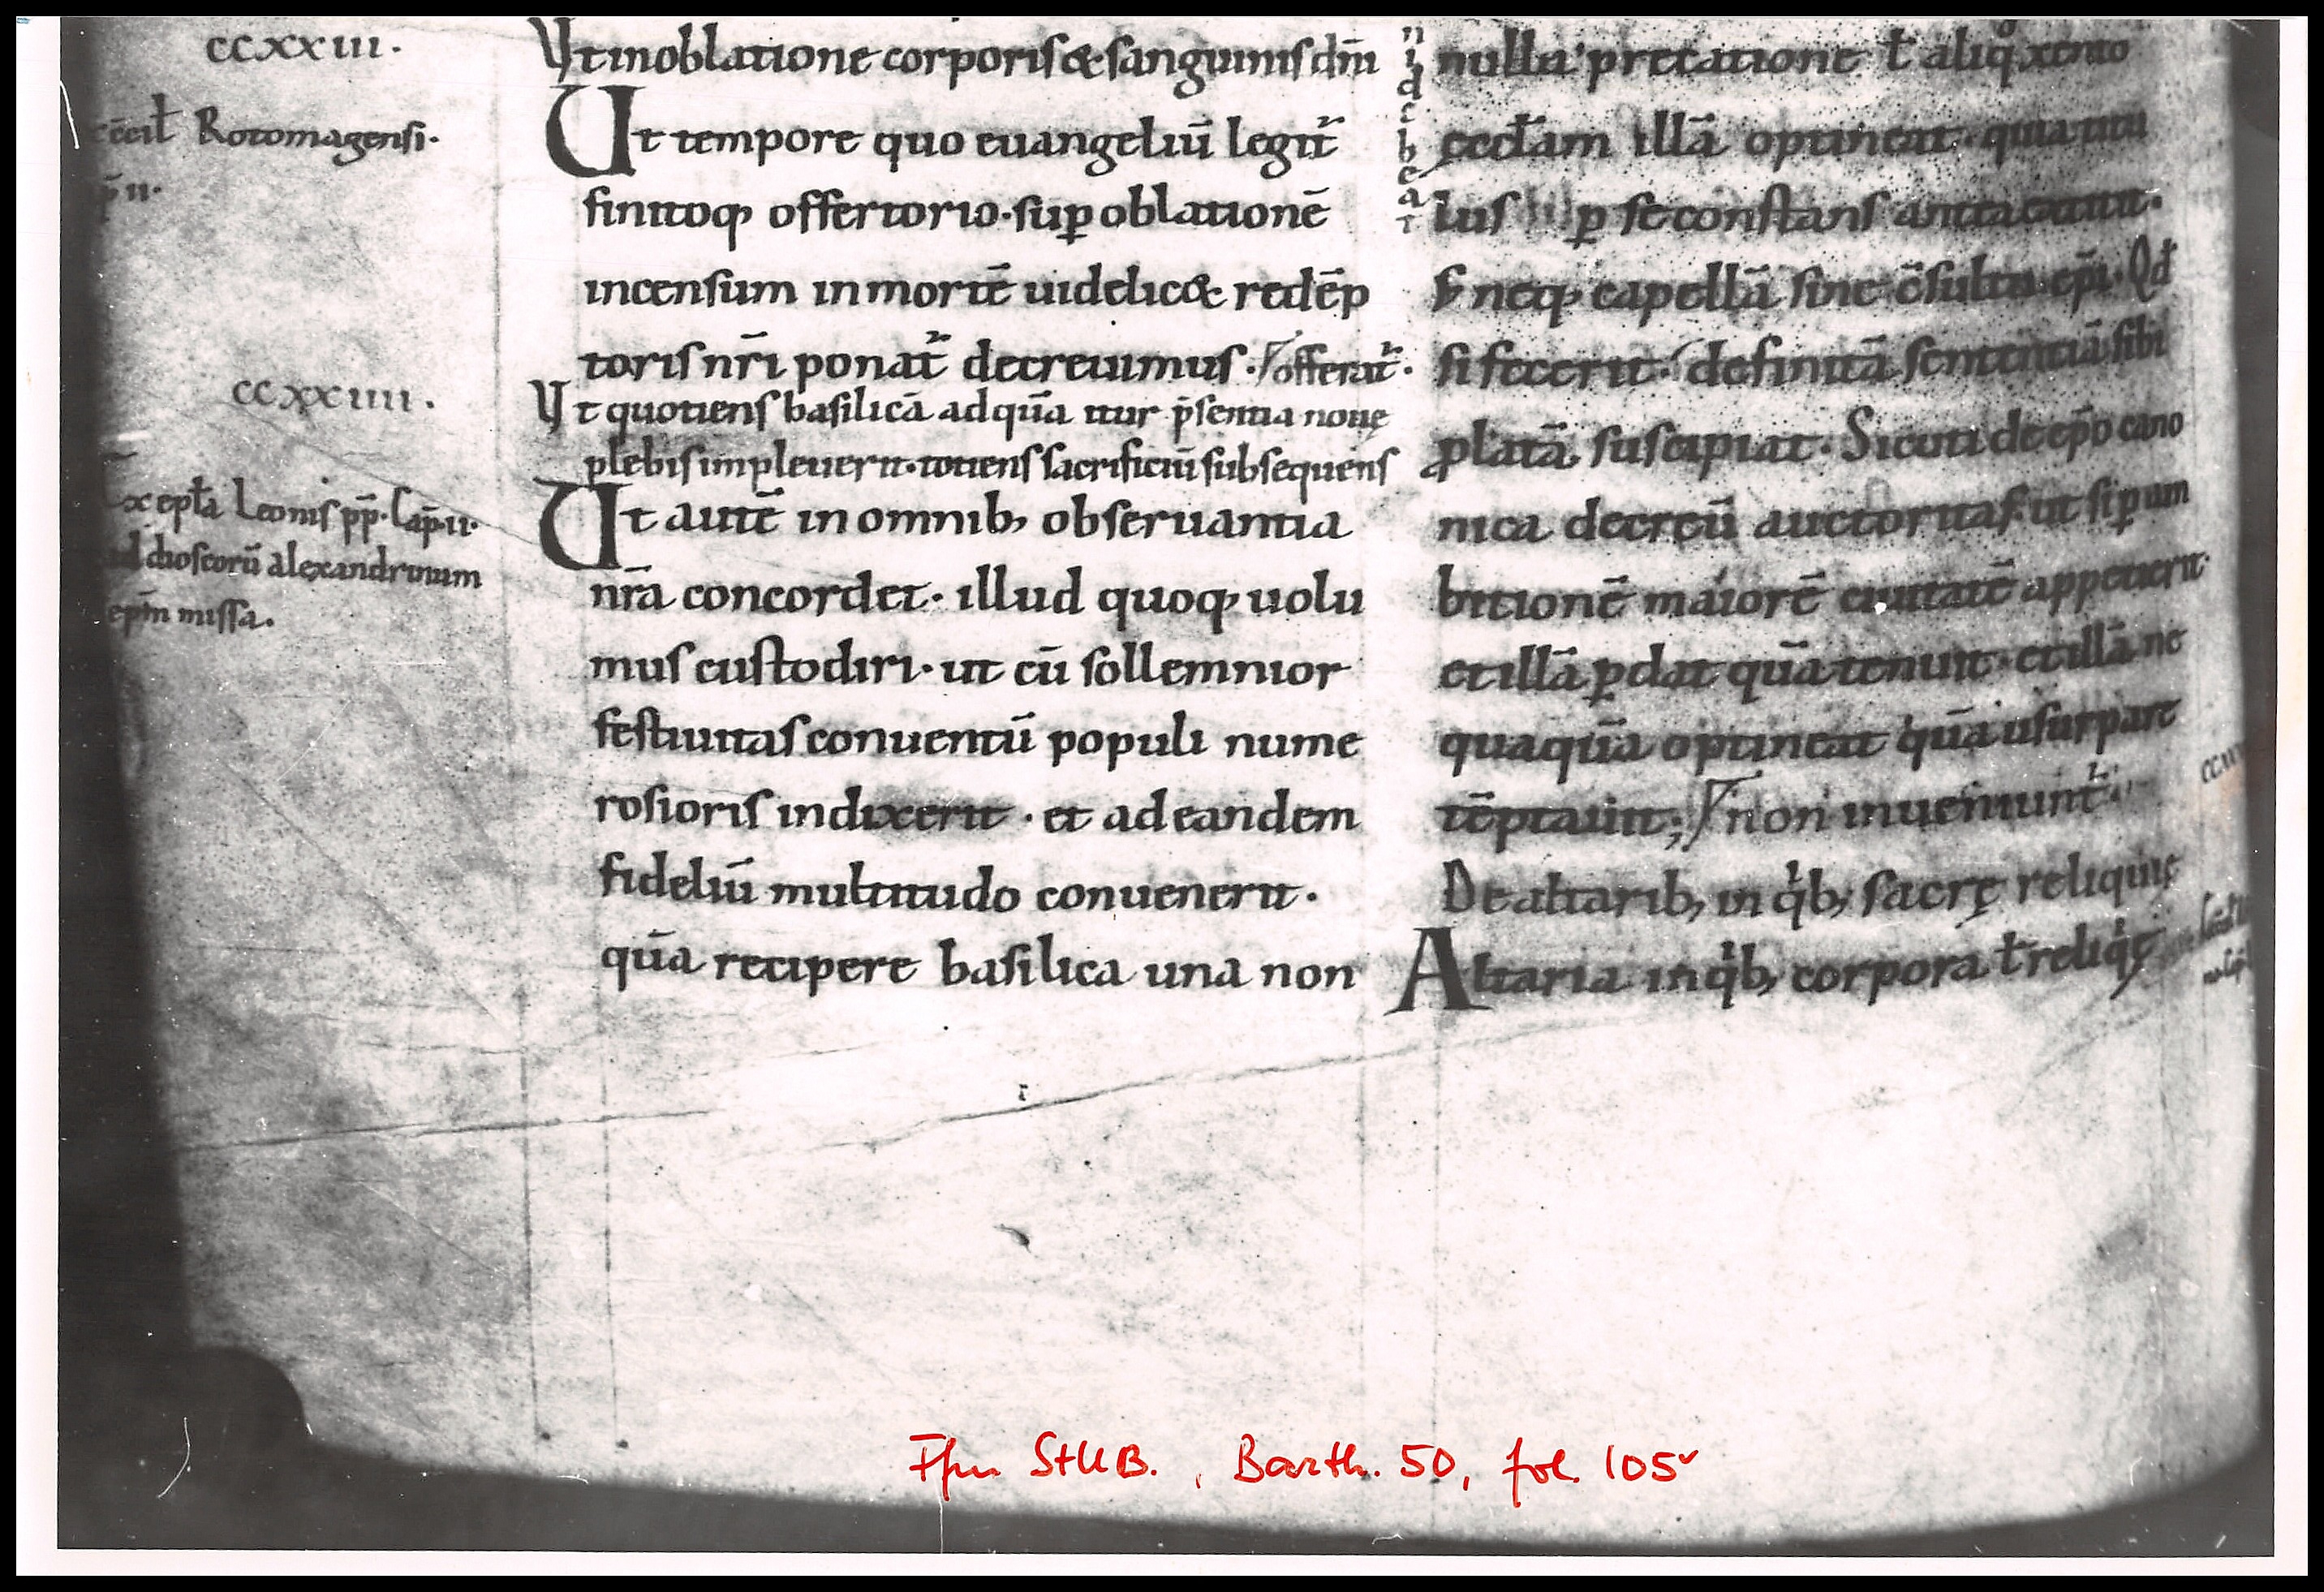 ccxxiii.
cc̄cil̄ Rotomagensi.
p̄ ii.
ccxxiiii.
ex epl̄a Leonis pp̄. Cap̄. ii.
ad dioscorū alexandrinum
ep̄m missa.
Ut in oblatione corporis & sanguinis dn̄i
Ut tempore quo euangeliū legit᷑
finitoq; offertorio. sup̱ oblationē
incensum in mortē uidelic& redēp
toris nr̄i ponat᷑ decreuimus. offerat᷑.
Ut quotiens basilicā ad quā itur p̄sentia nouę
plebis impleuerit. totiens sacrificiū subsequens
Ut autē in omnib; obseruantia
nr̄a concordet. illud quoq; uolu
mus custodiri. ut cū sollemnior
festiuitas conuentū populi nume
rosioris indixerit. et ad eandem
fideliū multitudo conuenerit.
quā recipere basilica una non
indebeat
nulla precatione ł aliq̊ xenio
ęccl̄am illā optineat. quia titu
lus p̱ se constans
neq; capellā sine c̄sultu ep̄i. Qđ
si fecerit. definitā sententiā sibi
ꝓlatā suscipiat. Sicuti de ep̄o cano
nica decreuit auctoritas. ut si p̱ am
bitionē maiorē ciuitatē appetierit.
et illā p̱dat quā tenuit. et illā ne
quaquā optineat quā usurpare
tēptauit; non inueniunt᷑
De altarib; in q̇b; sacrę reliquię
Altaria in q̇b; corpora ł reliq̇ę
Ffm StUB., Barth. 50, fol. 105v